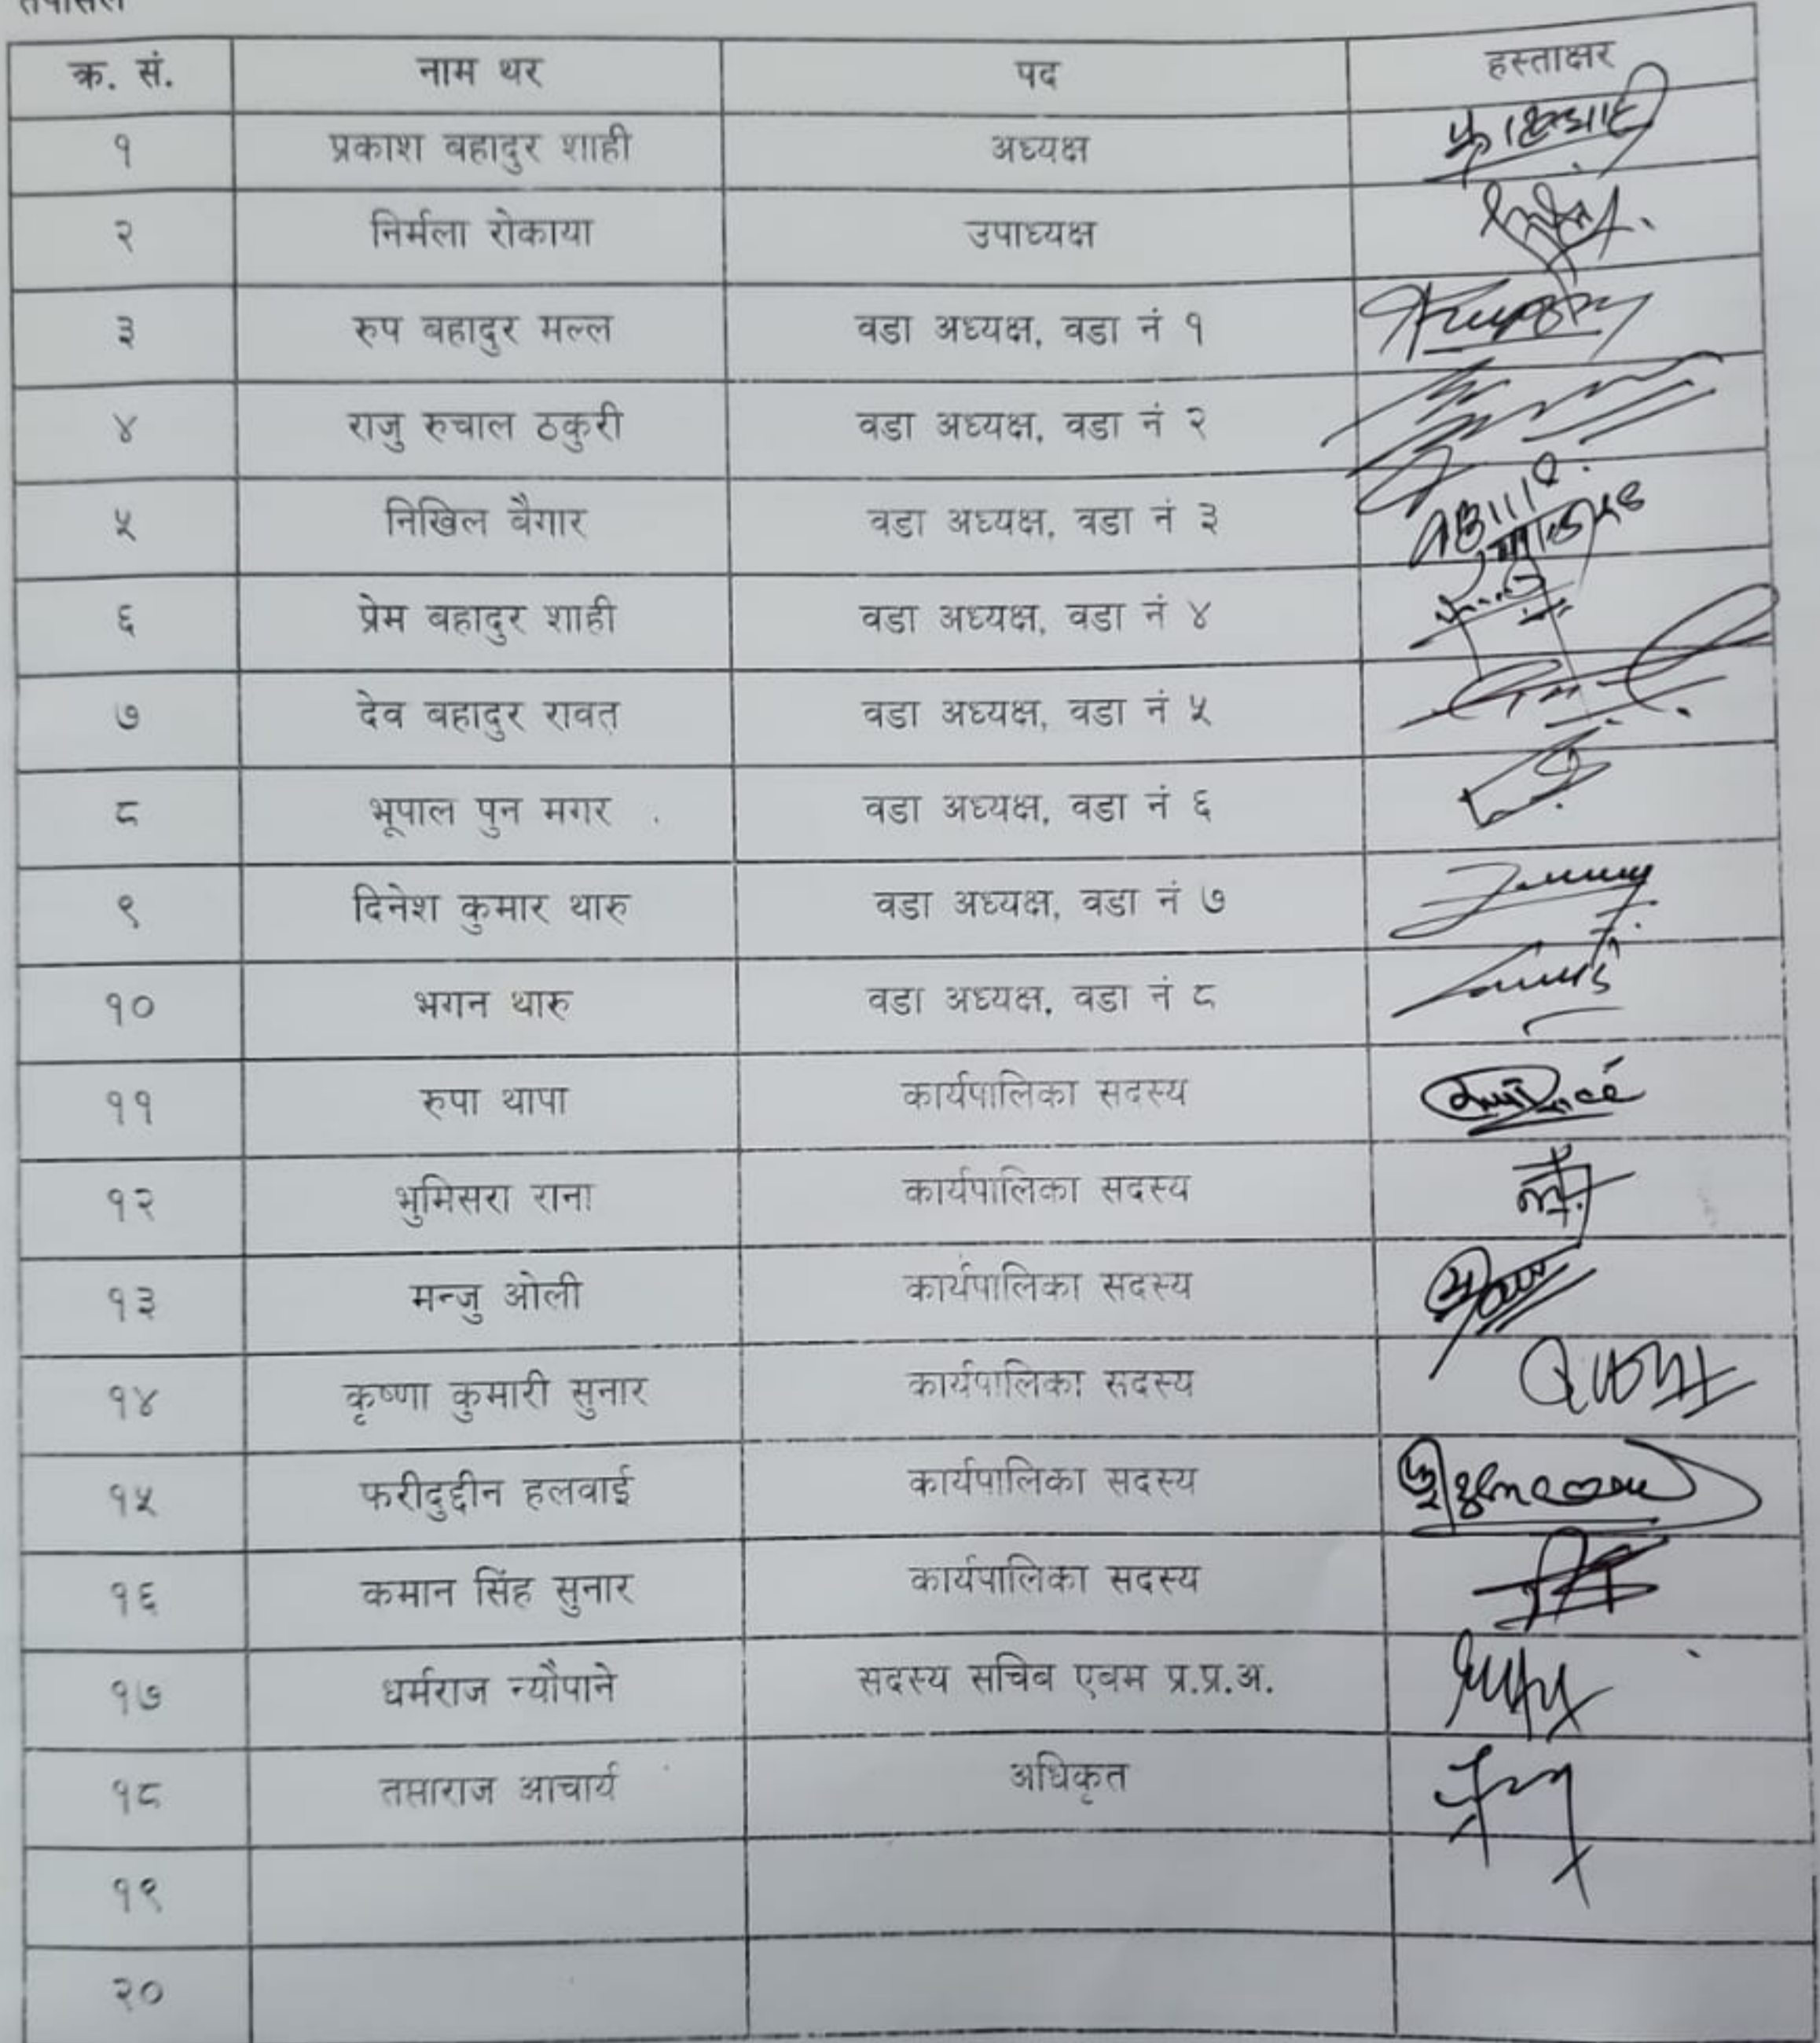 क्र. सं. नाम थर पद हस्ताक्षर
१ प्रकाश बहादुर शाही अध्यक्ष
२ निर्मला रोकाया उपाध्यक्ष
३ रुप बहादुर मल्ल वडा अध्यक्ष, वडा नं १
४ राजु रुचाल ठकुरी वडा अध्यक्ष, वडा नं २
५ निखिल बैगार वडा अध्यक्ष, वडा नं ३
६ प्रेम बहादुर शाही वडा अध्यक्ष, वडा नं ४
७ देव बहादुर रावत वडा अध्यक्ष, वडा नं ५
८ भूपाल पुन मगर वडा अध्यक्ष, वडा नं ६
९ दिनेश कुमार थारु वडा अध्यक्ष, वडा नं ७
१० भगन थारु वडा अध्यक्ष, वडा नं ८
११ रुपा थापा कार्यपालिका सदस्य
१२ भुमिसरा राना कार्यपालिका सदस्य
१३ मन्जु ओली कार्यपालिका सदस्य
१४ कृष्णा कुमारी सुनार कार्यपालिका सदस्य
१५ फरीदुद्दीन हलवाई कार्यपालिका सदस्य
१६ कमान सिंह सुनार कार्यपालिका सदस्य
१७ धर्मराज न्यौपाने सदस्य सचिव एवम प्र.प्र.अ.
१८ तप्ताराज आचार्य अधिकृत
१९
२०